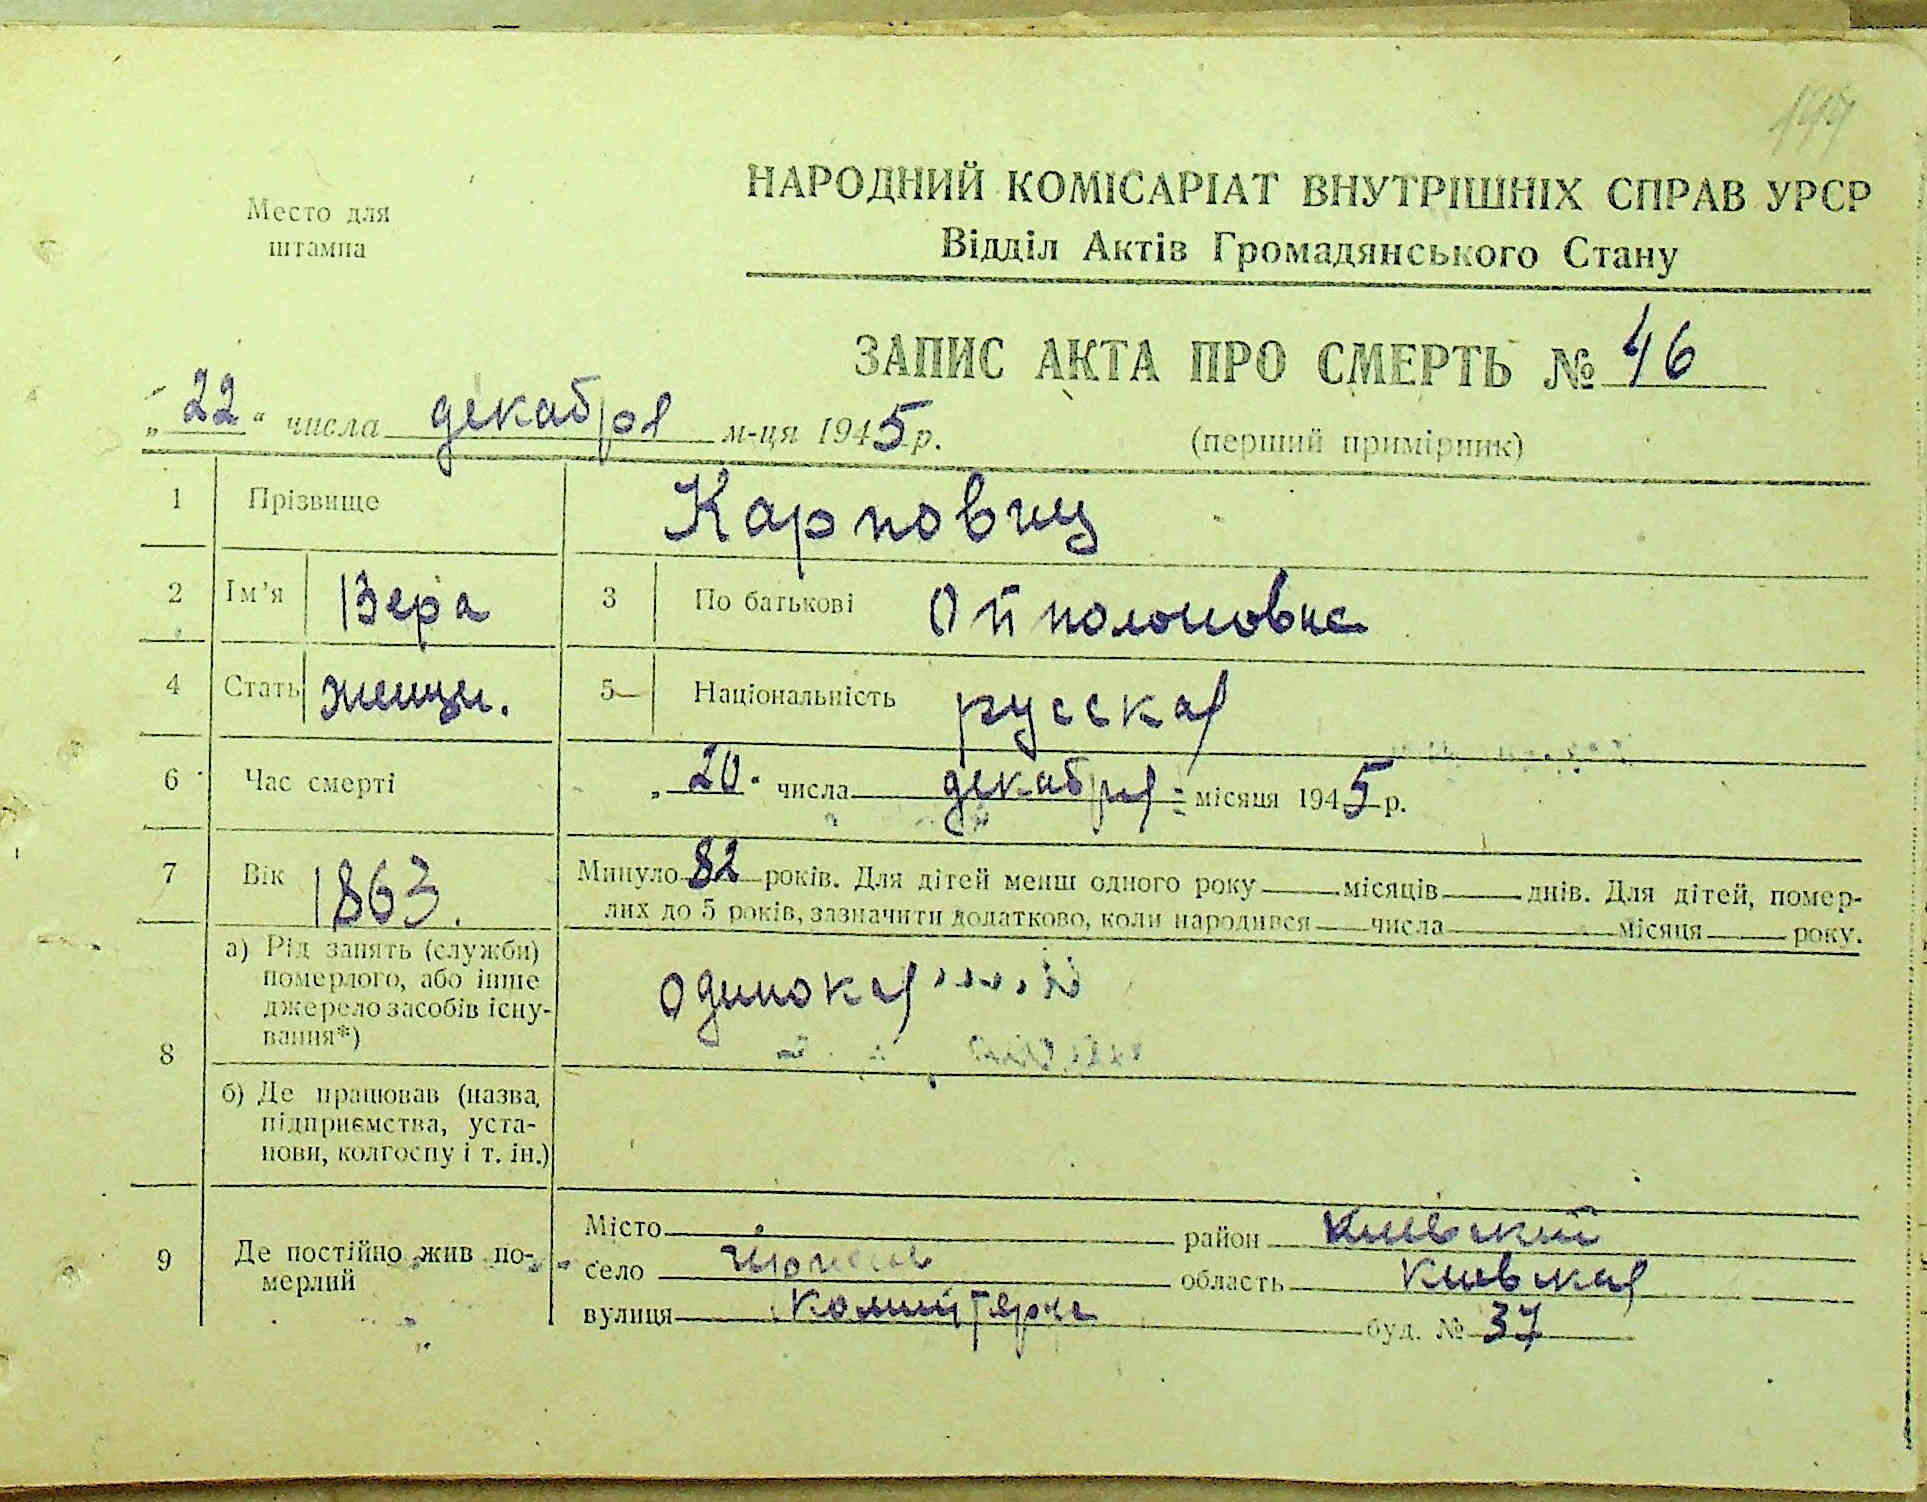 Место для
штампа
НАРОДНИЙ КОМІСАРІАТ ВНУТРІШНІХ СПРАВ УРСР
Відділ Актів Громадянського Стану
ЗАПИС АКТА ПРО СМЕРТЬ № 46
„22“ числа декабря м-ця 1945 р.
(перший примірник)
1 Прізвище Карповиц
2 Ім'я Вера 3 По батькові
4 Стать женщ. 5 Національність русская
6 Час смерті „20“ числа декабря місяця 1945 р.
7 Вік 1863. Минуло 82 років. Для дітей менш одного року місяців днів. Для дітей, помер-
лих до 5 років, зазначити додатково, коли народився числа місяця року.
8
а) Рід занять (служби)
померлого, або інше
джерело засобів існу-
вання*)
одинокая
б) Де працював (назва
підприємства, уста-
нови, колгоспу і т. ін.)
9 Де постійно жив по-
мерлий
Місто район Киевский
село область Киевская
вулиця Коминтерна буд. № 37